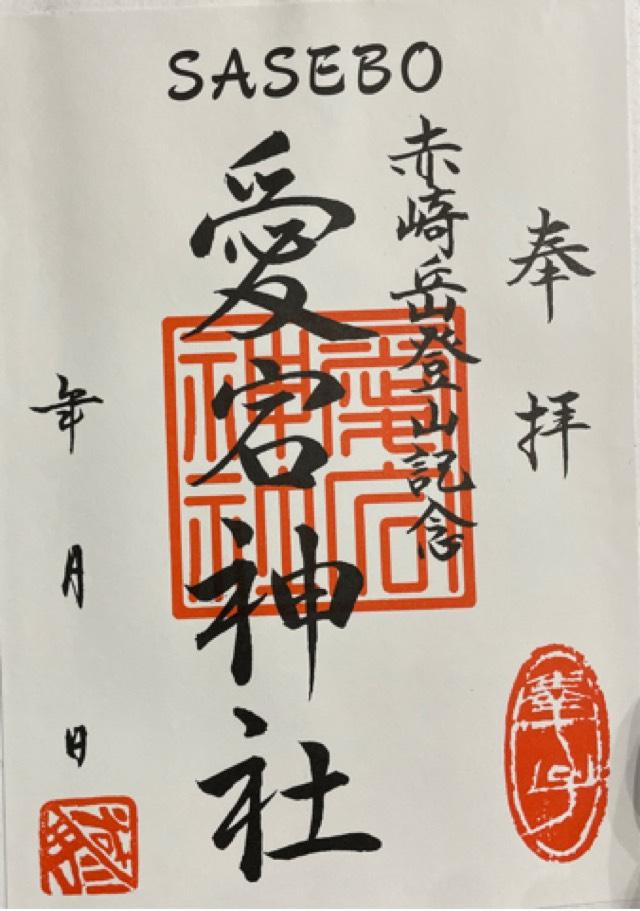 SASEBO
奉拝
赤崎岳登山記念
愛宕神社
愛宕神社
年月日